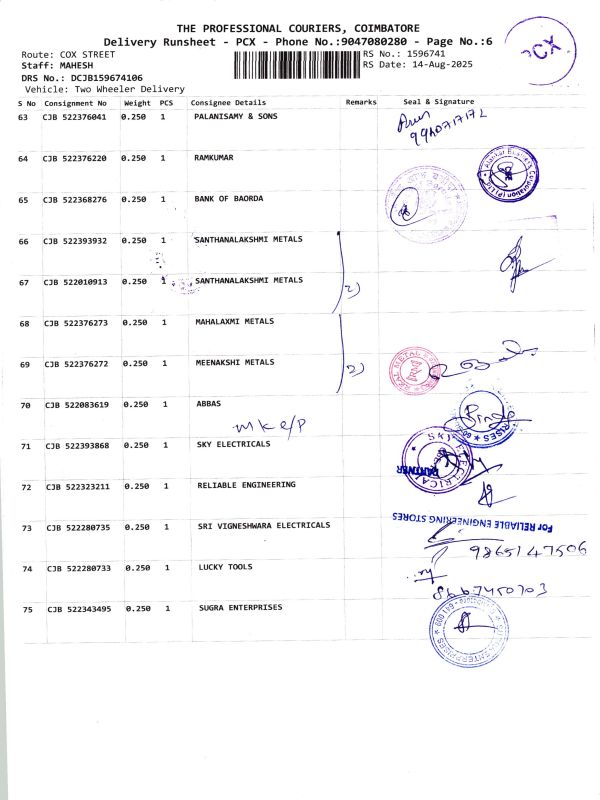 THE PROFESSIONAL COURIERS, COIMBATORE
Delivery Runsheet - PCX - Phone No.:9047080280 - Page No.:6
PCX
Route: COX STREET RS No.: 1596741
Staff: MAHESH RS Date: 14-Aug-2025
DRS No.: DCJB159674106
Vehicle: Two Wheeler Delivery
S No Consignment No Weight PCS Consignee Details Remarks Seal & Signature
63 CJB 522376041 0.250 1 PALANISAMY & SONS
64 CJB 522376220 0.250 1 RAMKUMAR
65 CJB 522368276 0.250 1 BANK OF BAORDA
66 CJB 522393932 0.250 1 SANTHANALAKSHMI METALS
67 CJB 522010913 0.250 1 SANTHANALAKSHMI METALS 2)
68 CJB 522376273 0.250 1 MAHALAXMI METALS
69 CJB 522376272 0.250 1 MEENAKSHI METALS 2)
70 CJB 522083619 0.250 1 ABBAS
71 CJB 522393868 0.250 1 SKY ELECTRICALS
PARTNER
72 CJB 522323211 0.250 1 RELIABLE ENGINEERING
For RELIABLE ENGINEERING STORES
73 CJB 522280735 0.250 1 SRI VIGNESHWARA ELECTRICALS
9865147506
74 CJB 522280733 0.250 1 LUCKY TOOLS
8667450703
75 CJB 522343495 0.250 1 SUGRA ENTERPRISES